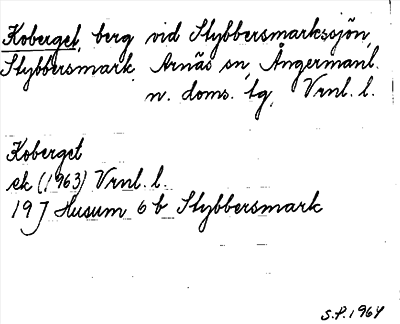 Koberget, berg vid Stybbersmarkssjön,
Stybbersmark, Arnäs sn, Ångermanl.
n. doms. tg, Vrnl. l.
Koberget
ek (1963) Vrnl. l.
19 J Husum 6 b Stybbersmark
S.P. 1964